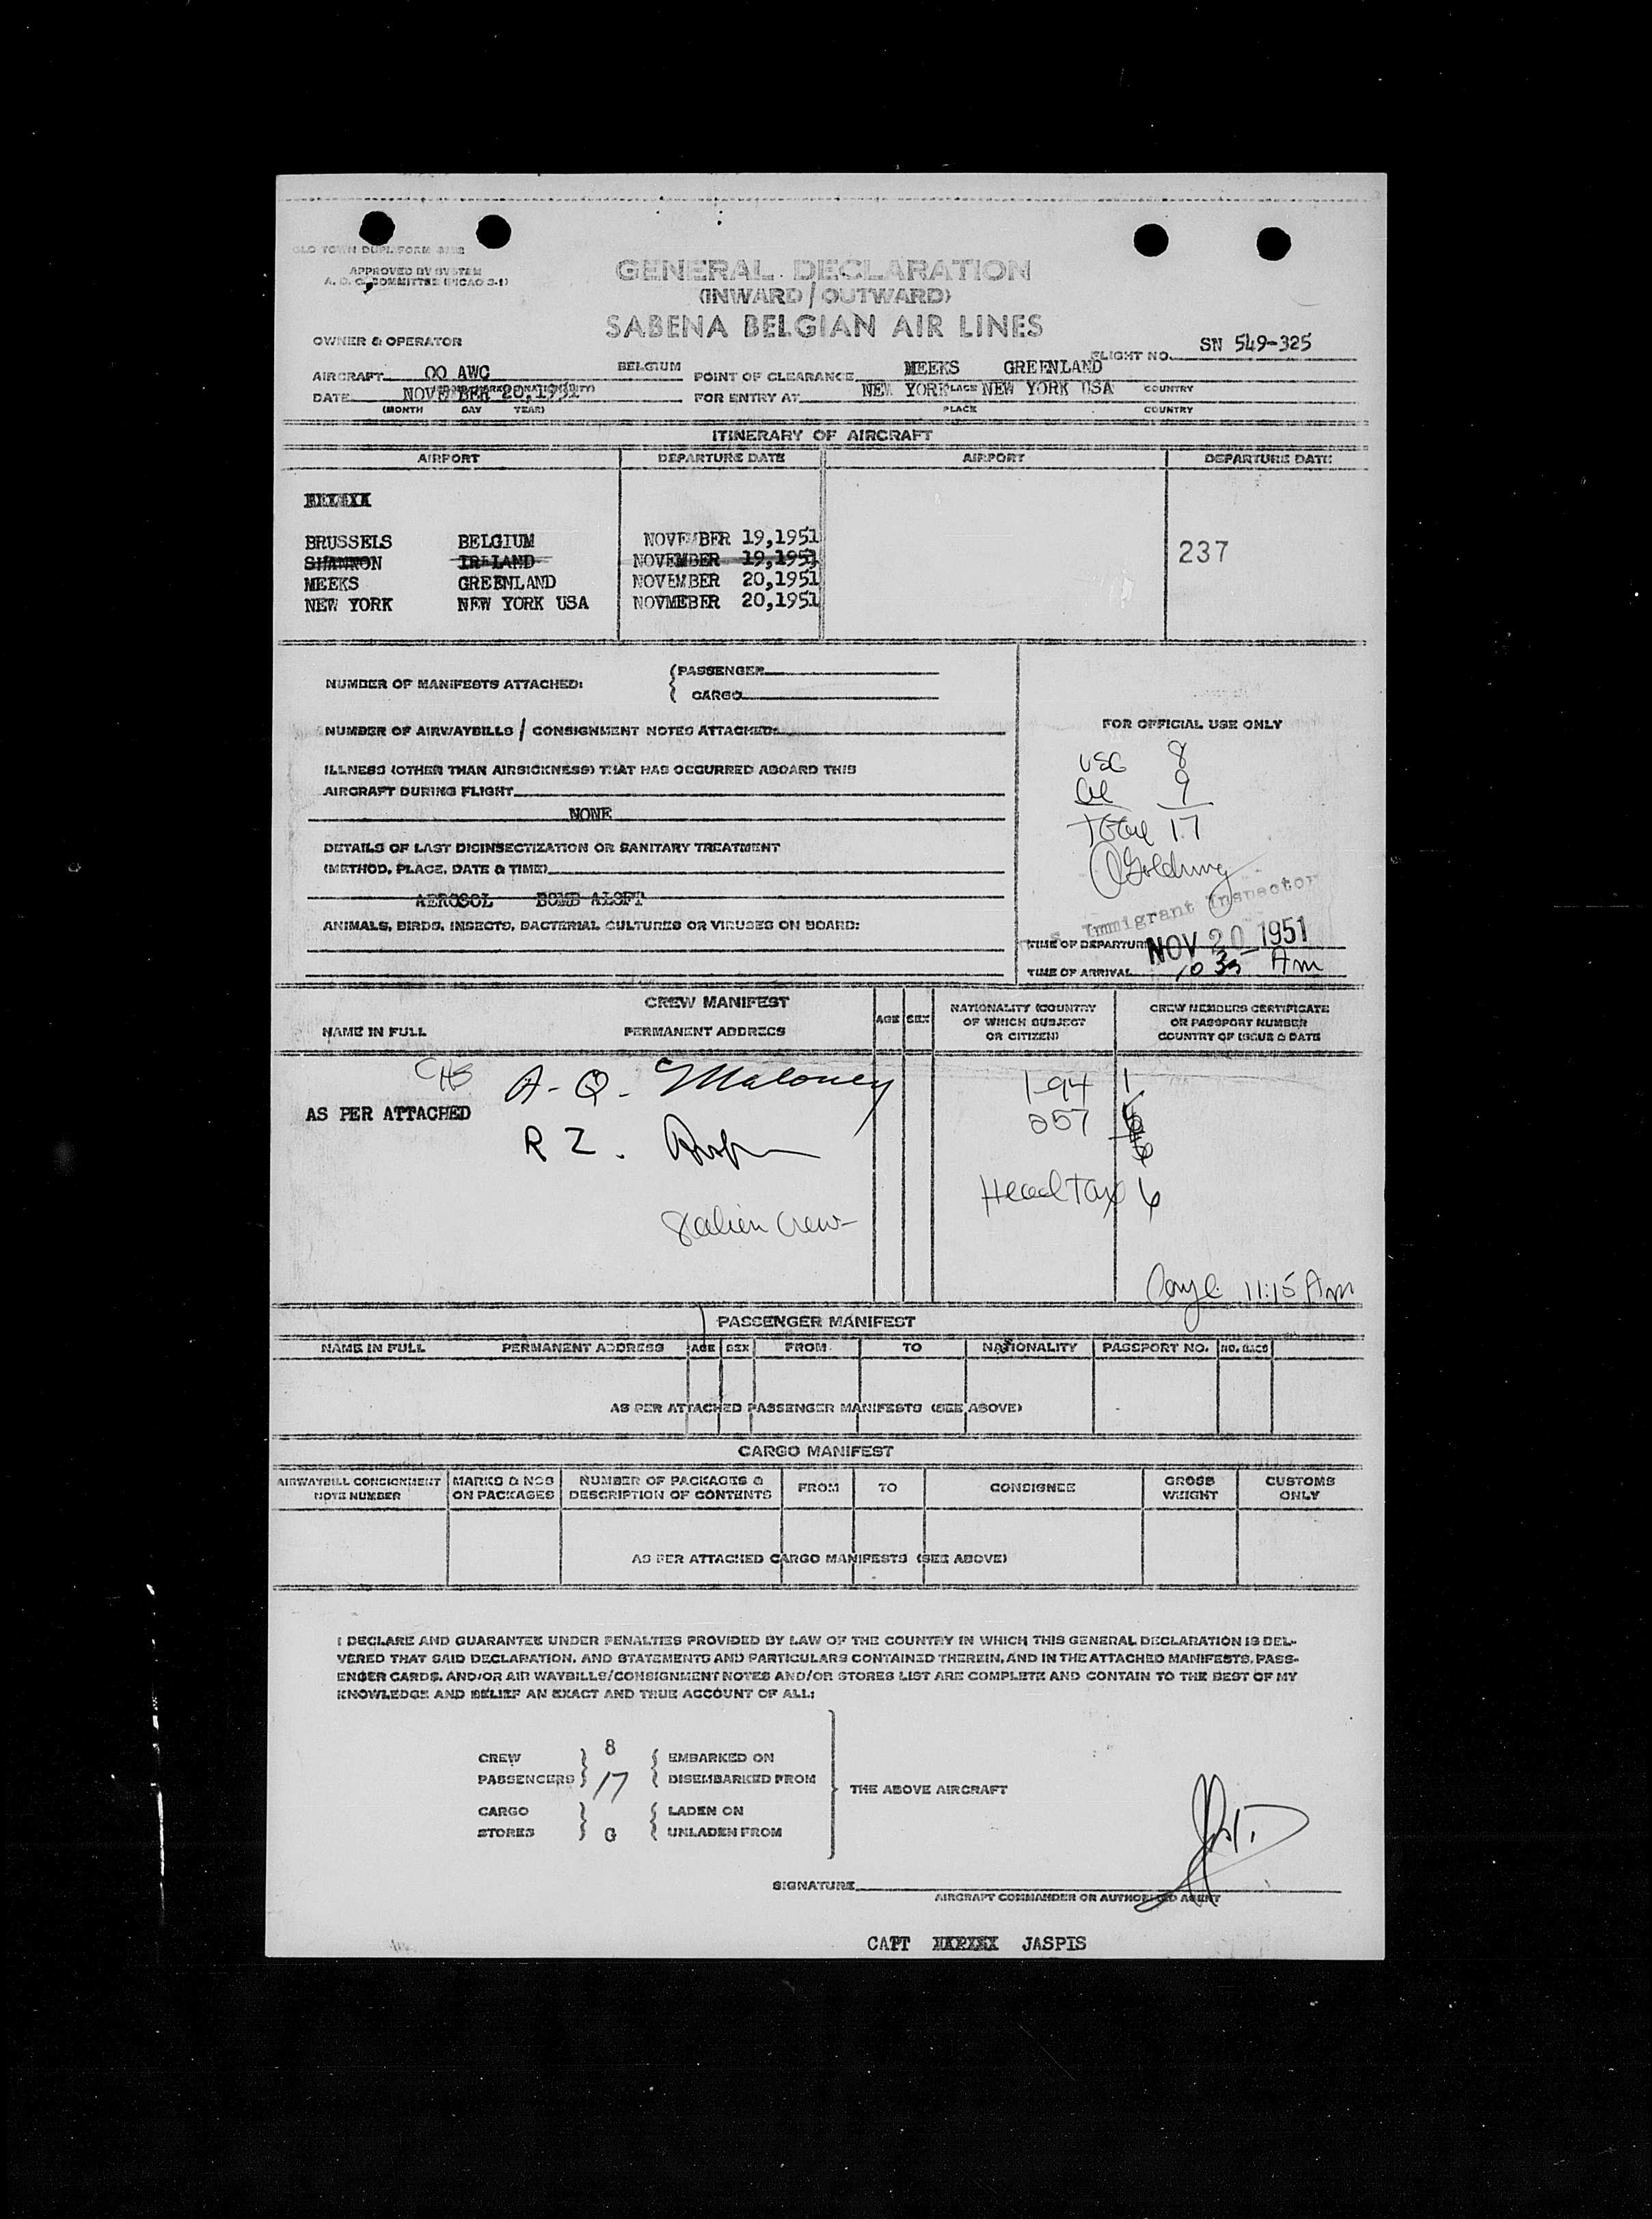 OLD TOWN DUPL. FORM
APPROVED BY SYSTEM
A. O. C. COMMITTEE (PICAO 3-1)
GENERAL DECLARATION
(INWARD / OUTWARD)
SABENA BELGIAN AIR LINES
OWNER & OPERATOR
FLIGHT NO. SN 549-325
AIRCRAFT OO AWC BELGIUM POINT OF CLEARANCE MEEKS GREENLAND
PLACE COUNTRY
DATE NOVEMBER 20,1951 FOR ENTRY AT NEW YORK NEW YORK USA
(MONTH DAY YEAR) PLACE COUNTRY
ITINERARY OF AIRCRAFT
AIRPORT DEPARTURE DATE AIRPORT DEPARTURE DATE
BRUSSELS BELGIUM NOVEMBER 19,1951
SHANNON IRELAND NOVEMBER 19,1951
237
MEEKS GREENLAND NOVEMBER 20,1951
NEW YORK NEW YORK USA NOVMEBER 20,1951
NUMBER OF MANIFESTS ATTACHED: PASSENGER
CARGO
NUMBER OF AIRWAYBILLS / CONSIGNMENT NOTES ATTACHED:
ILLNESS (OTHER THAN AIRSICKNESS) THAT HAS OCCURRED ABOARD THIS
AIRCRAFT DURING FLIGHT
NONE
DETAILS OF LAST DISINSECTIZATION OR SANITARY TREATMENT
(METHOD, PLACE, DATE & TIME)
AEROSOL BOMB ALOFT
ANIMALS, BIRDS, INSECTS, BACTERIAL CULTURES OR VIRUSES ON BOARD:
FOR OFFICIAL USE ONLY
USC 8
al 9
Total 17
Goldring
Immigrant Inspector
TIME OF DEPARTURE NOV 20 1951
TIME OF ARRIVAL 10 35 Am
CREW MANIFEST
NAME IN FULL PERMANENT ADDRESS AGE SEX NATIONALITY (COUNTRY OF WHICH SUBJECT OR CITIZEN) CREW MEMBERS CERTIFICATE OR PASSPORT NUMBER COUNTRY OF ISSUE & DATE
CHS A. Q. Maloney I-94 1
AS PER ATTACHED 257
R Z.
Head Tax 6
8 alien crew
11:15 Am
PASSENGER MANIFEST
NAME IN FULL PERMANENT ADDRESS AGE SEX FROM TO NATIONALITY PASSPORT NO. NO. BAGS
AS PER ATTACHED PASSENGER MANIFESTS (SEE ABOVE)
CARGO MANIFEST
AIRWAYBILL CONSIGNMENT NOTE NUMBER MARKS & NOS ON PACKAGES NUMBER OF PACKAGES & DESCRIPTION OF CONTENTS FROM TO CONSIGNEE GROSS WEIGHT CUSTOMS ONLY
AS PER ATTACHED CARGO MANIFESTS (SEE ABOVE)
I DECLARE AND GUARANTEE UNDER PENALTIES PROVIDED BY LAW OF THE COUNTRY IN WHICH THIS GENERAL DECLARATION IS DEL-
VERED THAT SAID DECLARATION, AND STATEMENTS AND PARTICULARS CONTAINED THEREIN, AND IN THE ATTACHED MANIFESTS, PASS-
ENGER CARDS, AND/OR AIR WAYBILLS/CONSIGNMENT NOTES AND/OR STORES LIST ARE COMPLETE AND CONTAIN TO THE BEST OF MY
KNOWLEDGE AND BELIEF AN EXACT AND TRUE ACCOUNT OF ALL:
CREW 8 EMBARKED ON
PASSENGERS 17 DISEMBARKED FROM
THE ABOVE AIRCRAFT
CARGO LADEN ON
STORES G UNLADEN FROM
SIGNATURE
AIRCRAFT COMMANDER OR AUTHORIZED AGENT
CAPT JASPIS